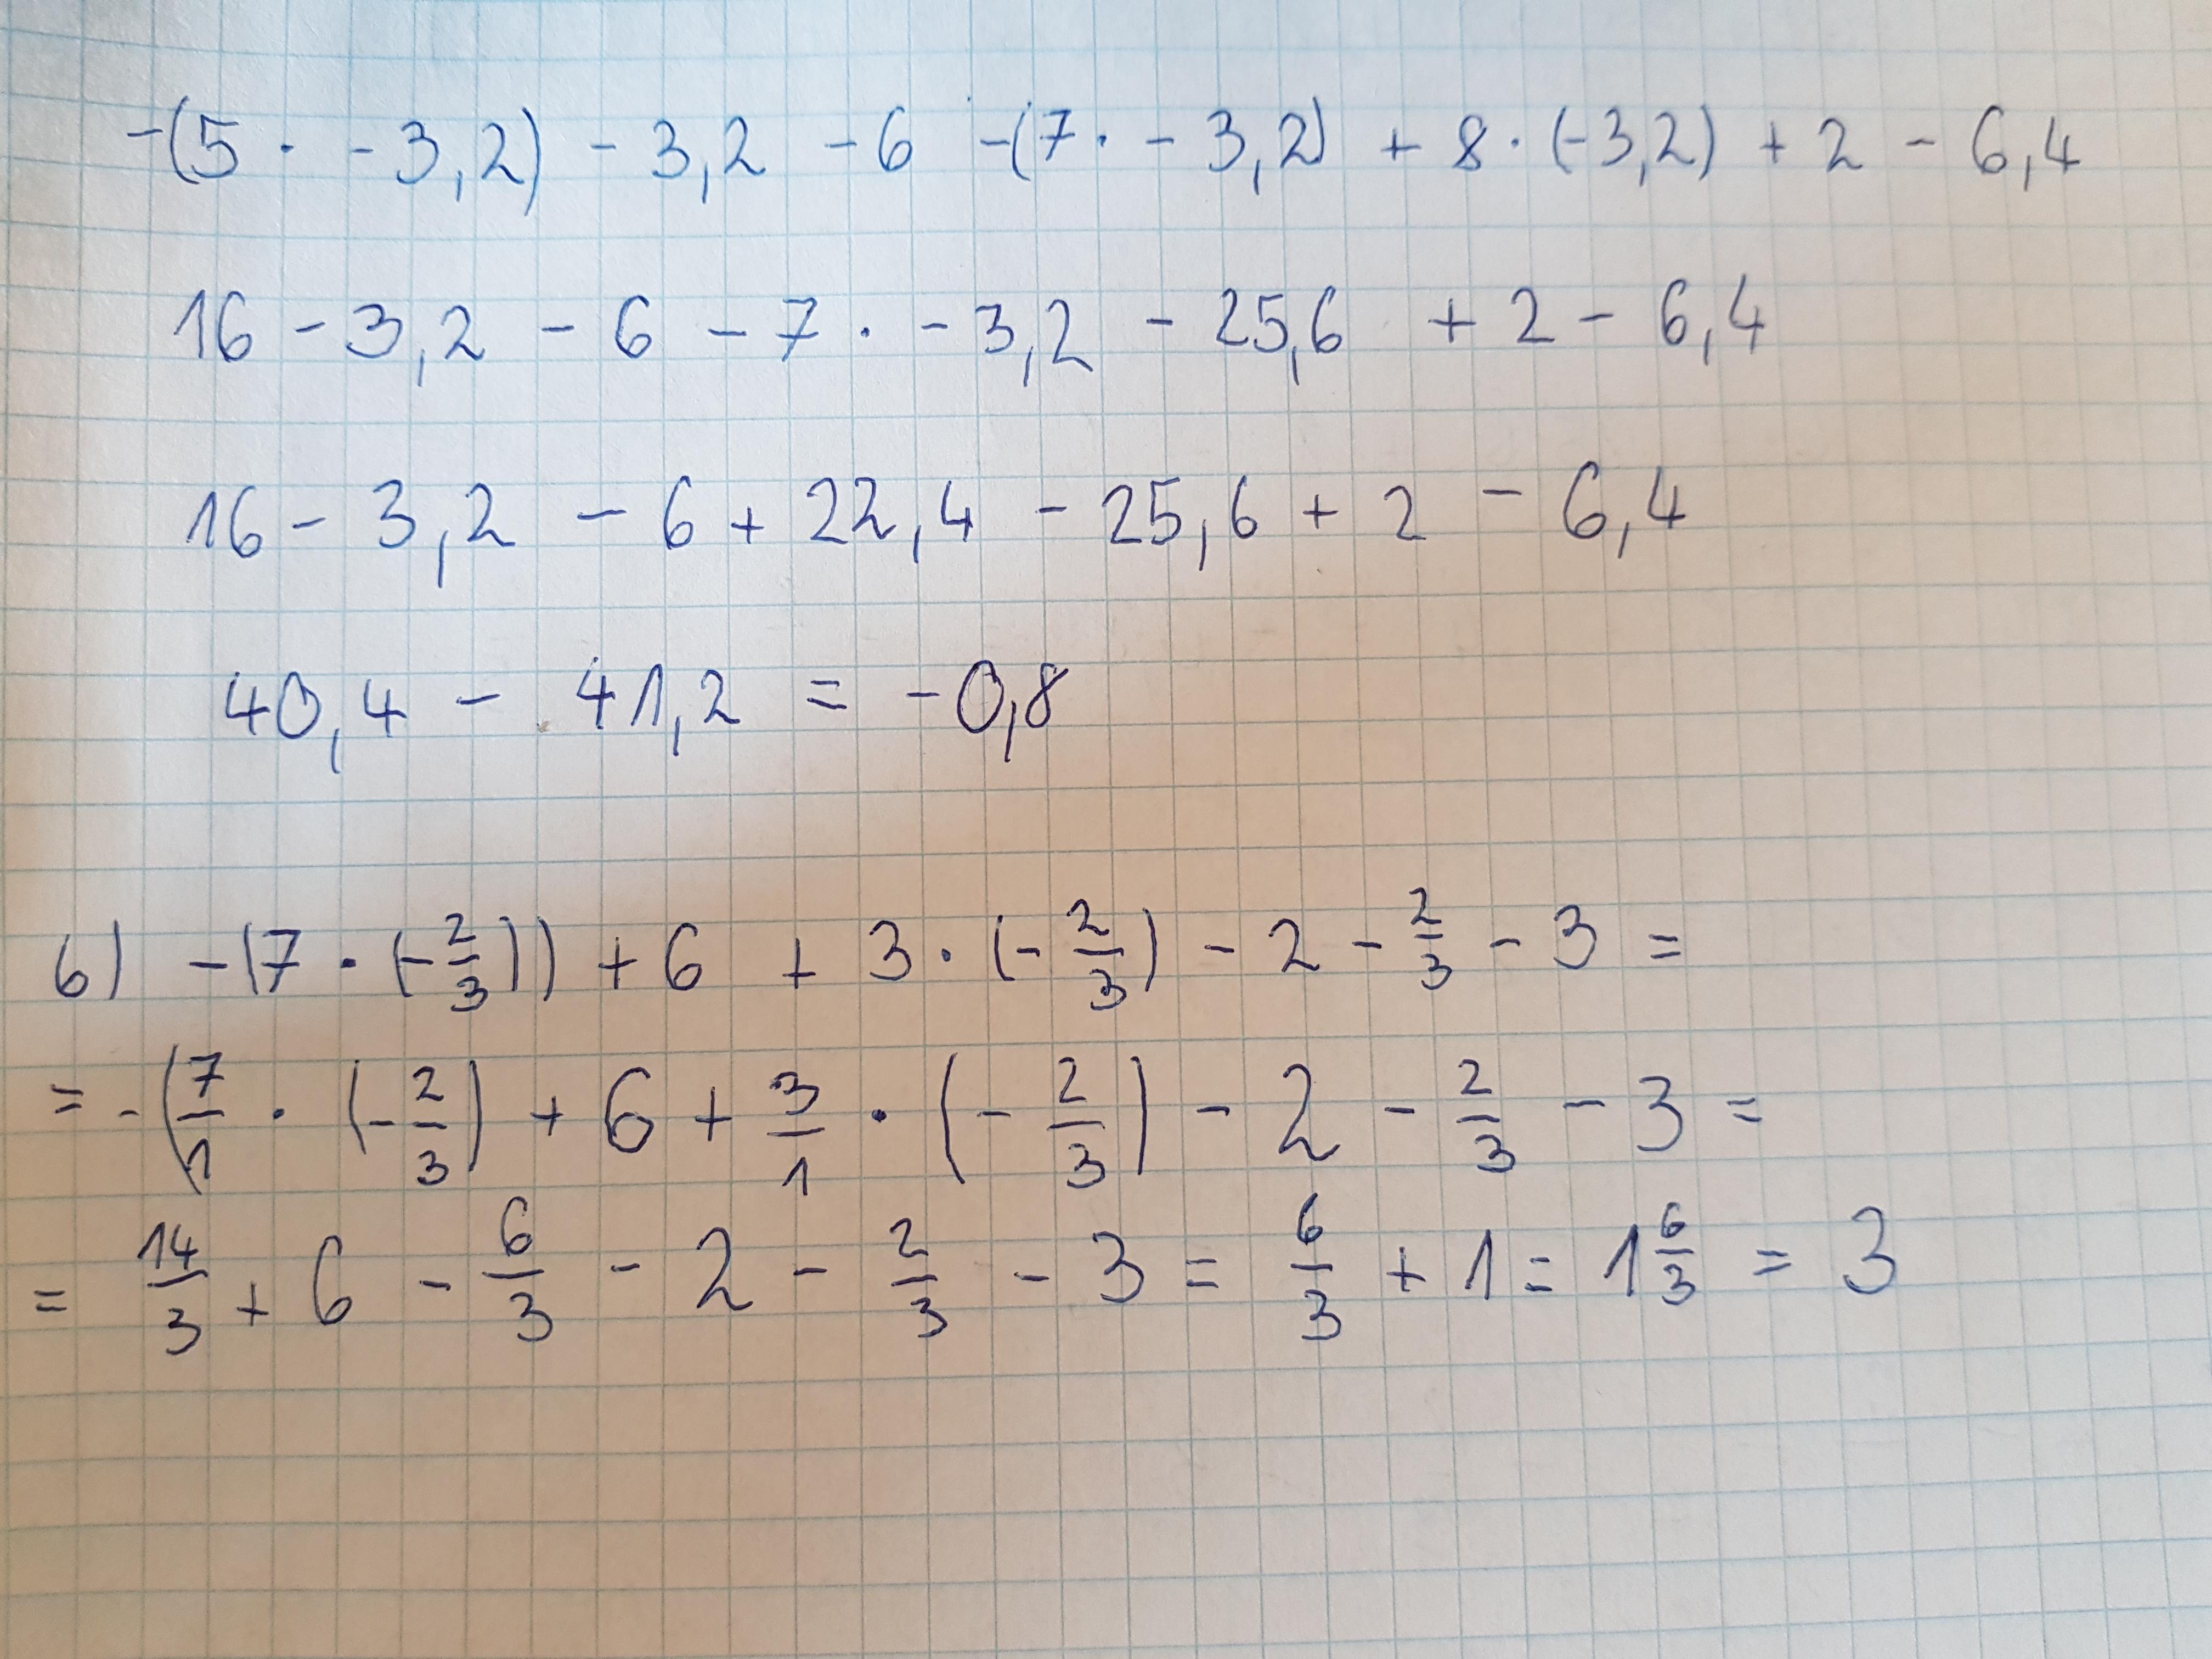 -(5 · -3,2) - 3,2 - 6 -(7 · - 3,2) + 8 · (-3,2) + 2 - 6,4
16 - 3,2 - 6 - 7 · - 3,2 - 25,6 + 2 - 6,4
16 - 3,2 - 6 + 22,4 - 25,6 + 2 - 6,4
40,4 - 41,2 = -0,8
b) -(7 · (-2/3)) + 6 + 3 · (-2/3) - 2 - 2/3 - 3 =
= -(7/1 · (-2/3) + 6 + 3/1 · (-2/3) - 2 - 2/3 - 3 =
= 14/3 + 6 - 6/3 - 2 - 2/3 - 3 = 6/3 + 1 = 1 6/3 = 3